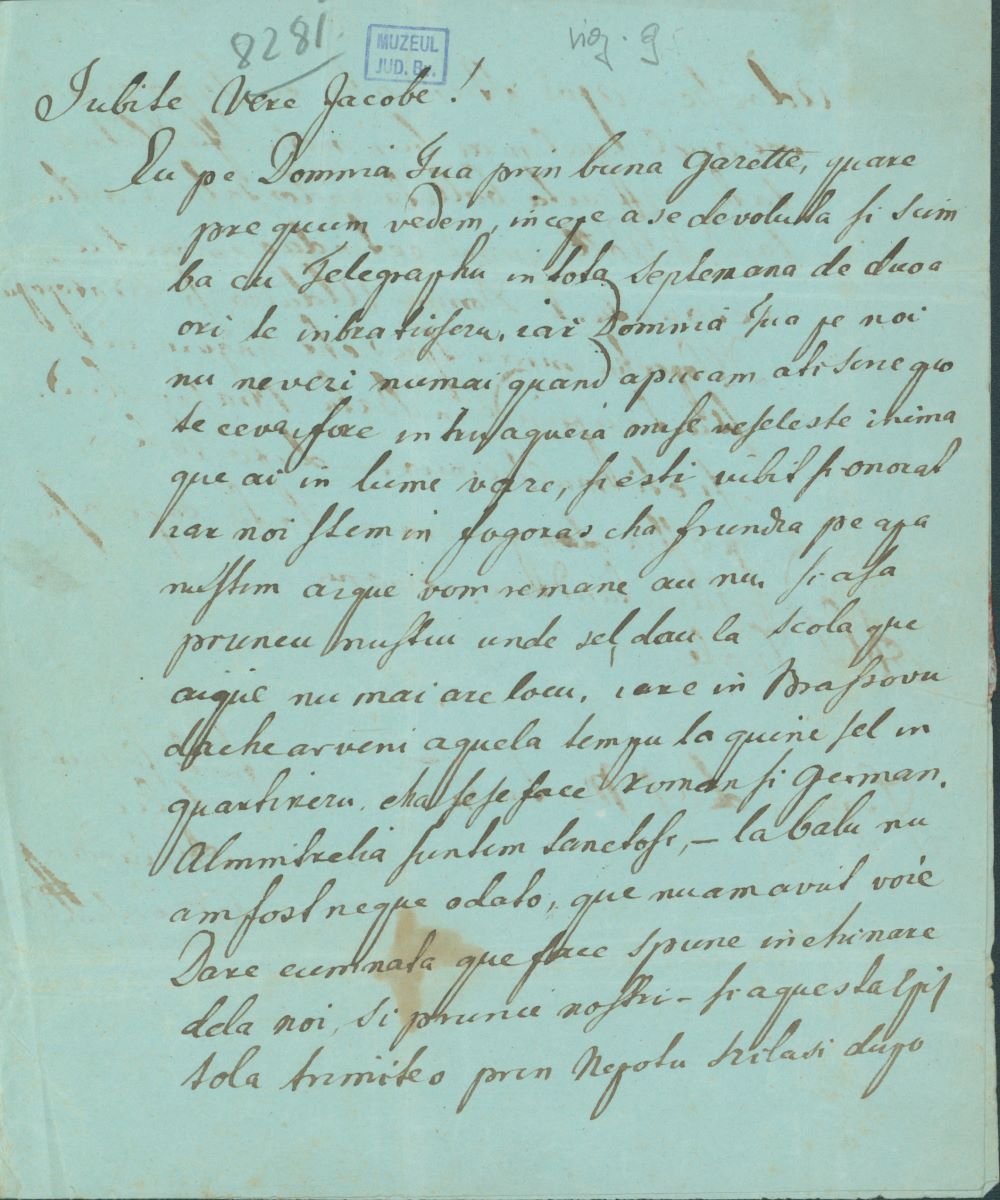 8281.
MUZEUL
JUD. Bv.
Iubite Vere Jacobe!
Eu pe Domnia Tua prin buna Gazette, quare
prequum vedem, incepe a se devolulla si scim
ba cu Telegraphu in tota septemana de duoa
ori te inbratioseru, iar Domnia Tua pe noi
nu ne vezi numai quand apucam ati scrie quo
te ceva, fore intru aqueia mise veseleste inima
que ai in lume vere, si esti iubit si onorat
iar noi stem in fogoras cha frundza pe apa
nusstim aique vom remane au nu, si asa
pruncu nusstiu unde sel dau la scola que
aique nu mai are locu, iare in Brassovu
dache ar veni aquela tempu la quine sel in
quartireru, cha se se face roman si German.
Almintrelia suntem sanetosi, – la balu nu
am fost neque odato, que nu am avut voie
Dare cumnata que face spune inchinare
dela noi, si pruncii nostri – si aquesta Epis
tola trimiteo prin Nepotu Szilasi dupo